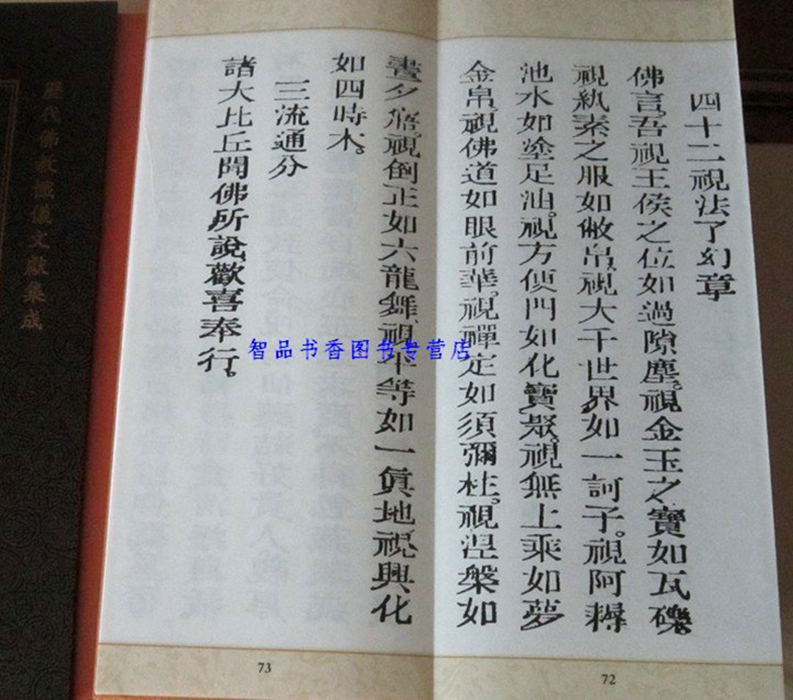 四十二視法了幻章
佛言。吾視王侯之位如過隙塵。視金玉之寶如瓦礫。
視紈素之服如敝帛。視大千世界如一訶子。視阿耨
池水如塗足油。視方便門如化寶聚。視無上乘如夢
金帛。視佛道如眼前華。視禪定如須彌柱。視涅槃如
晝夕寤。視倒正如六龍舞。視平等如一眞地。視興化
如四時木。
三流通分
諸大比丘聞佛所說歡喜奉行。
智品书香图书专营店
歷代佛教
文獻集成
73
72